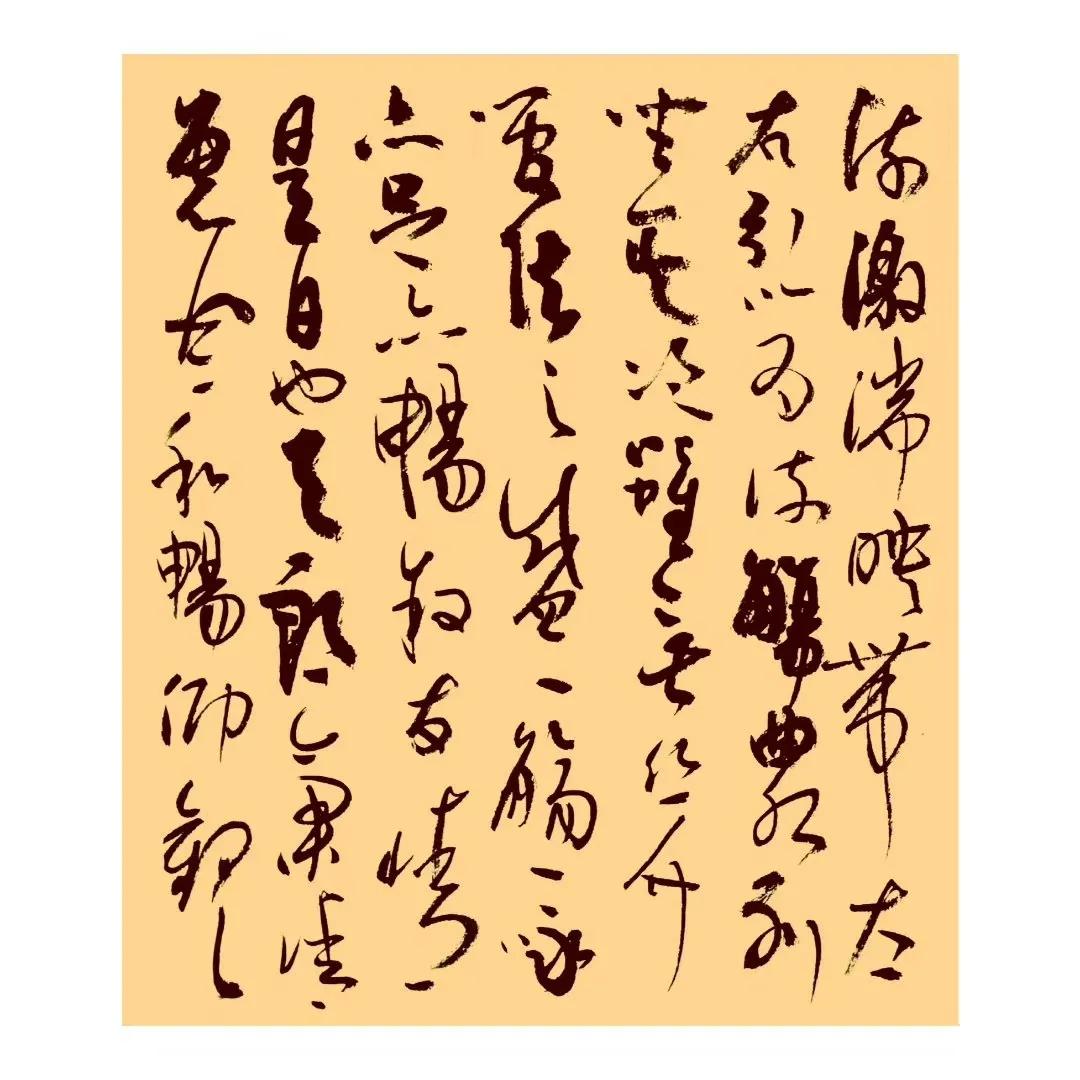 流激湍映帶左
右引以為流觴曲水列
坐其次雖無絲竹
管弦之盛一觴一詠
亦足以暢叙幽情
是日也天朗氣清
惠風和暢仰觀